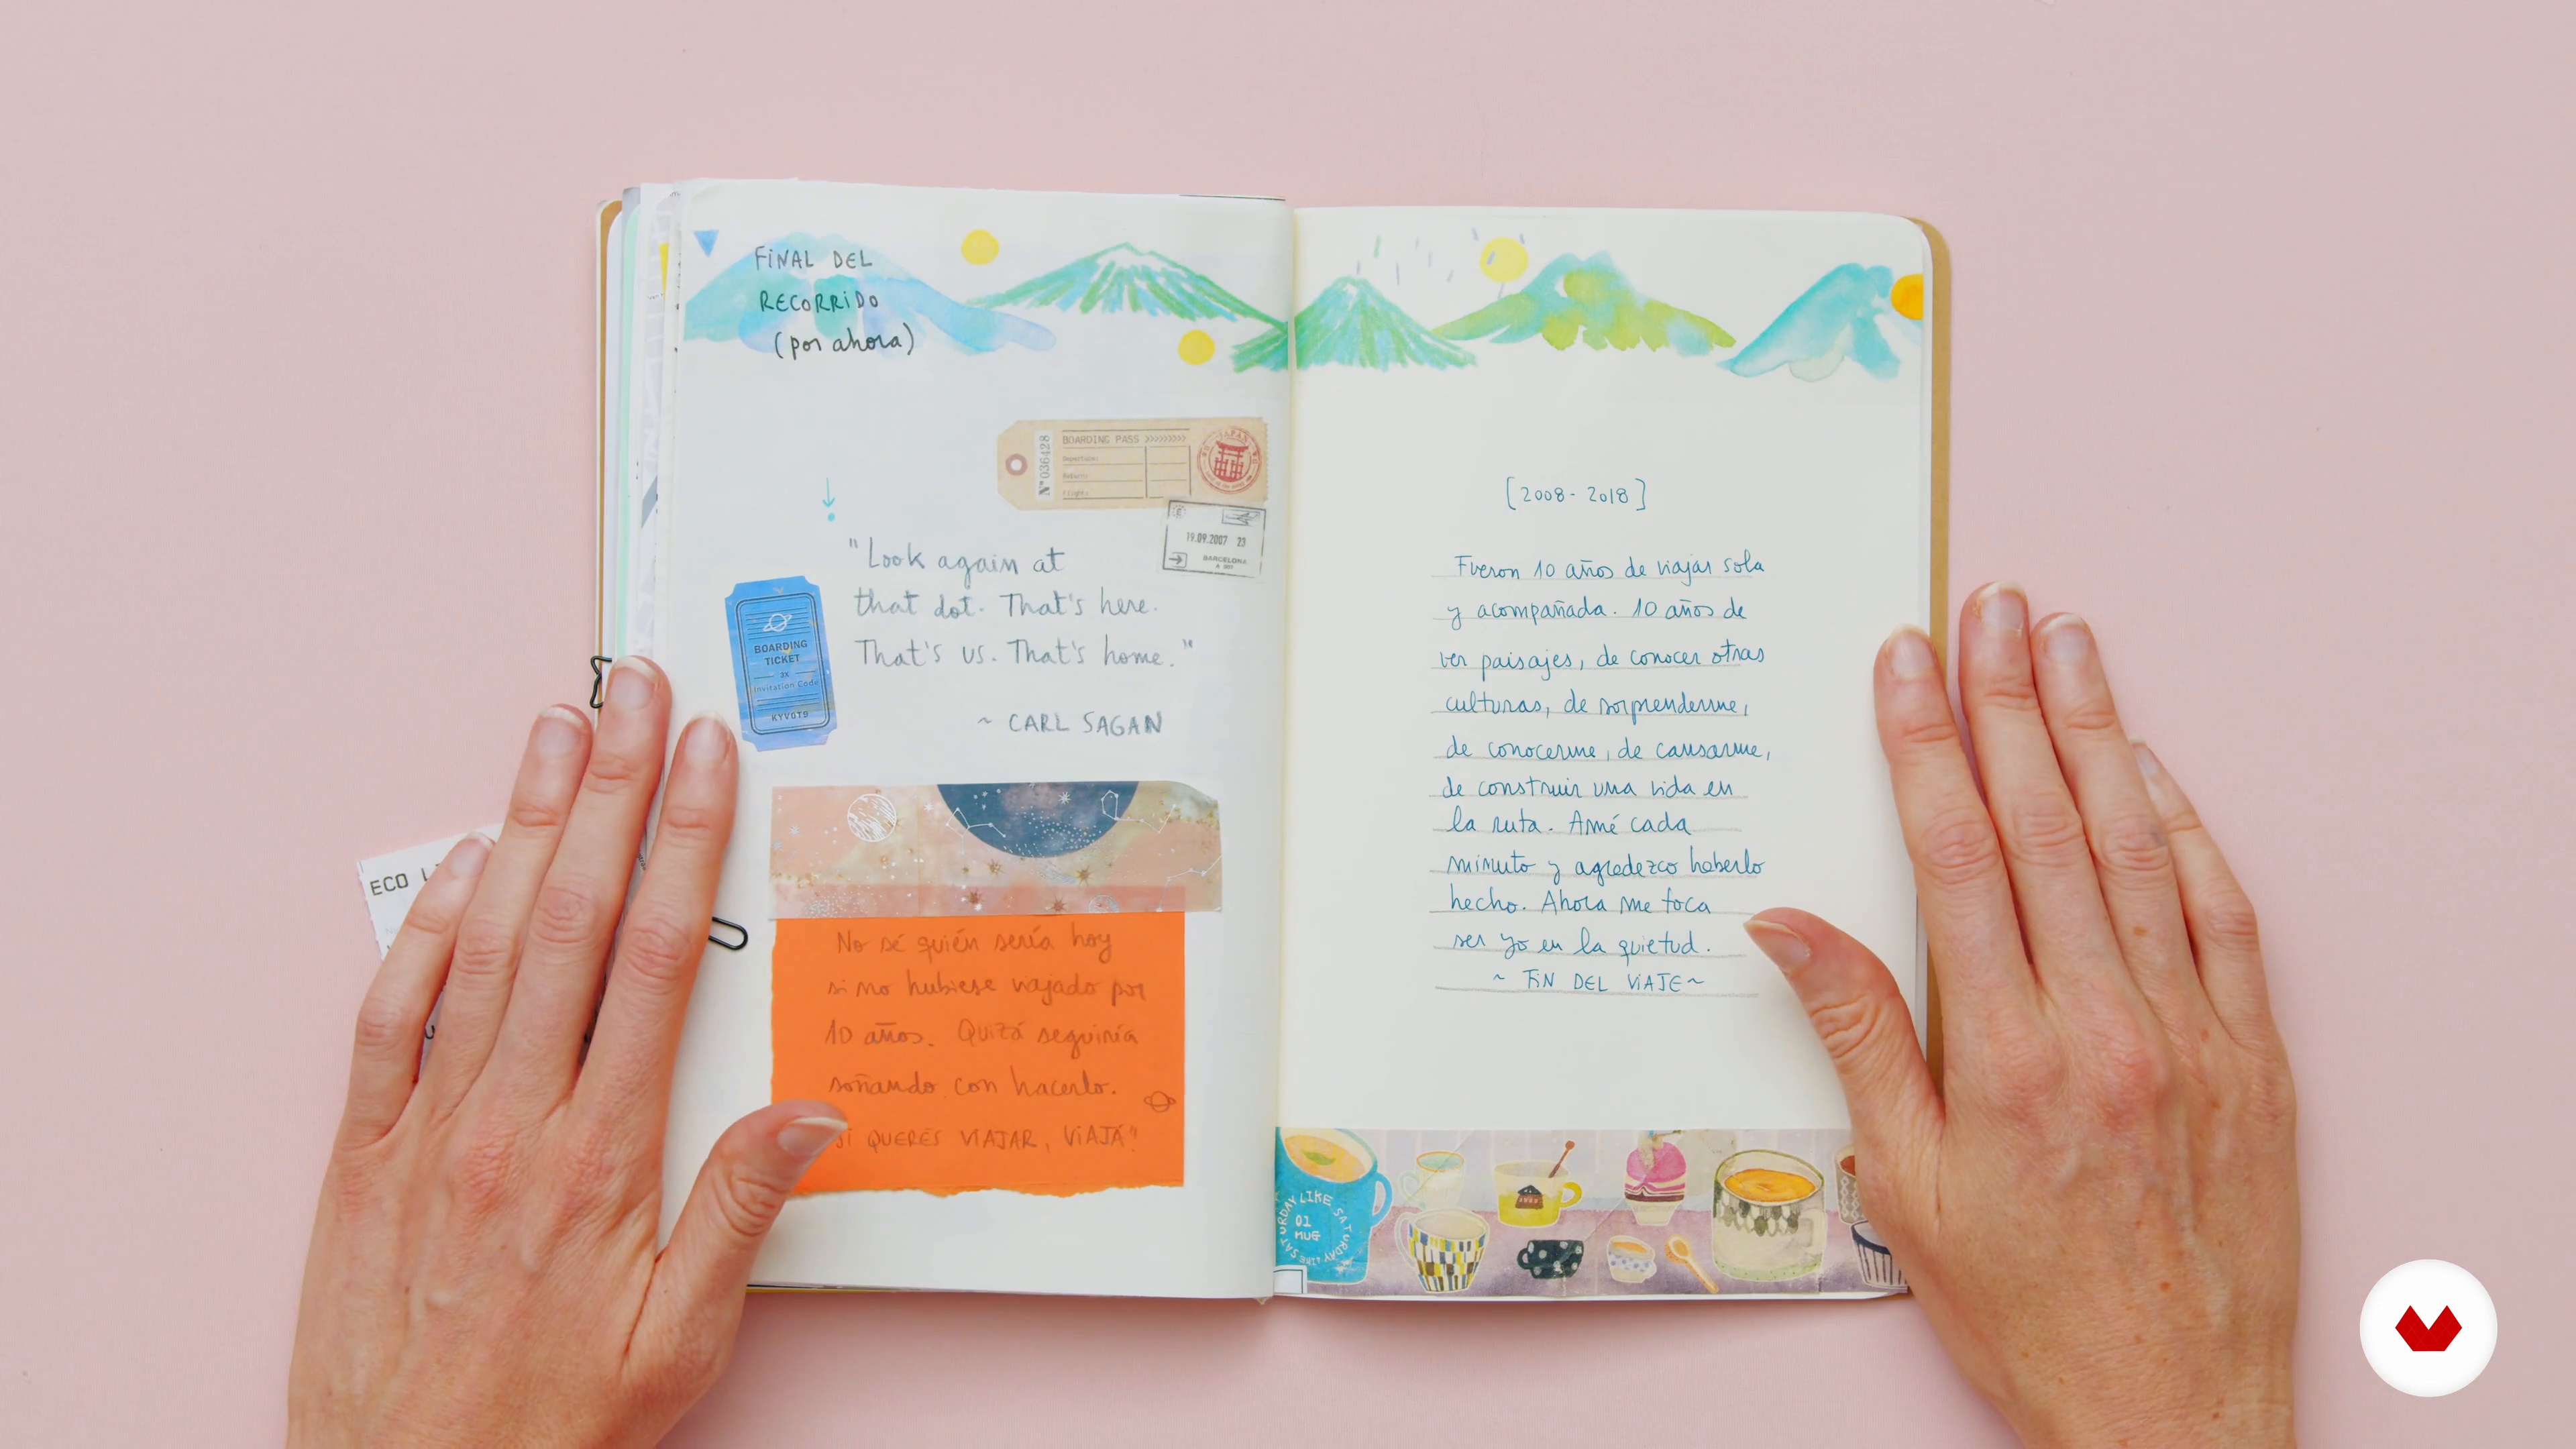 FINAL DEL
RECORRIDO
(por ahora)
BOARDING PASS >>>>>>>>>
Departure:
Return:
Flight:
Nº036428
JAPAN
19.09.2007 23
BARCELONA
"Look again at
that dot. That's here.
That's us. That's home."
~ CARL SAGAN
BOARDING
TICKET
3X
Invitation Code
KYV0T9
No sé quién sería hoy
si no hubiese viajado por
10 años. Quizá seguiría
soñando con hacerlo.
SI QUERÉS VIAJAR, VIAJÁ"
ECO
[2008-2018]
Fueron 10 años de viajar sola
y acompañada. 10 años de
ver paisajes, de conocer otras
culturas, de sorprenderme,
de conocerme, de cansarme,
de construir una vida en
la ruta. Amé cada
minuto y agradezco haberlo
hecho. Ahora me toca
ser yo en la quietud.
~ FIN DEL VIAJE ~
SATURDAY LIKE SATURDAY LIKE
01
MUG